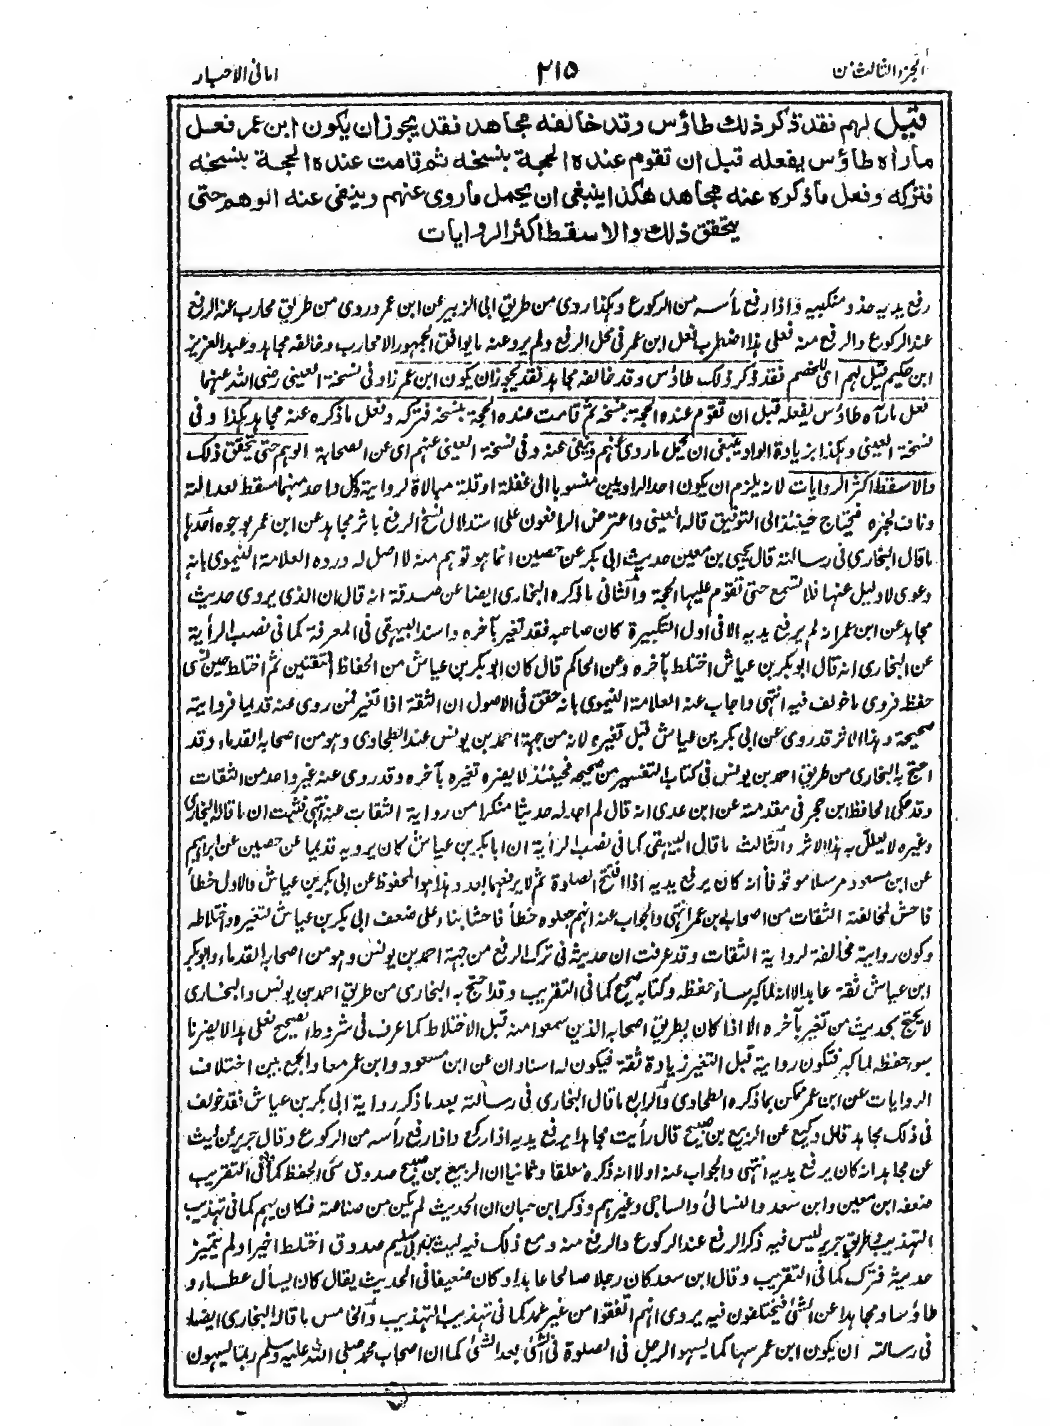 الجزء الثالث من
٢١٥
اماني الاحبار
قيل لهم نقد ذكر ذلك طاؤس وقد خالفه مجاهد نقد يجوز ان يكون ابن عمر فعل
ماراه طاؤس يفعله قبل ان تقوم عنده الحجة بنسخه ثم قامت عنده الحجة بنسخه
فتركه وفعل ماذكره عنه مجاهد هكذا ينبغى ان يحمل ماروى عنهم وينفى عنه الوهم حتى
يتحقق ذلك والا سقط اكثر الروايات
رفع يديه حذو منكبيه واذا رفع رأسه من الركوع وهكذا روى من طريق ابى الزبير عن ابن عمر وروى من طريق محارب عنه الرفع
عند الركوع والرفع منه فعلى هذا اضطرب فعل ابن عمر فى محل الرفع ولم يرو عنه ما يوافق الجمهور الا محارب وخالفه مجاهد وعبد العزيز
ابن حكيم قيل لهم اى للخصم فقد ذكر ذلك طاؤس وقد خالفه مجاهد فقد يجوز ان يكون ابن عمر زاد فى نسخة العينى رضى الله عنهما
فعل مارآه طاؤس يفعله قبل ان تقوم عنده الحجة بنسخه ثم قامت عنده الحجة بنسخه فتركه وفعل ماذكره عنه مجاهد هكذا وفى
نسخة العينى وهكذا بزيادة الواو ينبغى ان يحمل ماروى عنهم وينفى عنه وفى نسخة العينى عنهم اى عن الصحابة الوهم حتى يتحقق ذلك
والا سقط اكثر الروايات لانه يلزم ان يكون احد الراويين منسوبا الى غفلة او قلة مبالاة لرواية وكل واحد منهما مسقط لعدالته
وناف لخبره فيحتاج حينئذ الى التوفيق قاله العينى واعترض الرافعون على استدلال نسخ الرفع باثر مجاهد عن ابن عمر بوجوه احدها
ما قال البخارى فى رسالته قال يحيى بن معين حديث ابى بكر عن حصين انما هو توهم منه لا اصل له ورده العلامة النيموى بانه
دعوى لا دليل عنها فلا تسمع حتى تقوم عليها الحجة والثانى ماذكره البخارى ايضا عن صدقة انه قال ان الذى يروى حديث
مجاهد عن ابن عمر انه لم يرفع يديه الا فى اول التكبيرة كان صاحبه قد تغير بآخره واسند البيهقى فى المعرفة كما فى نصب الراية
عن البخارى انه قال ابو بكر بن عياش اختلط بآخره وعن الحاكم قال كان ابو بكر بن عياش من الحفاظ المتقنين ثم اختلط حين نسى
حفظه فروى ما خولف فيه انتهى واجاب عنه العلامة النيموى بانه حقق فى الاصول ان الثقة اذا تغير فمن روى عنه قديما فروايته
صحيحة وهذا الاثر قد روى عن ابى بكر بن عياش قبل تغيره لانه من جهة احمد بن يونس عند الطحاوى وهو من اصحابه القدماء وقد
احتج به البخارى من طريق احمد بن يونس فى كتاب التفسير من صحيحه فحينئذ لا يضره تغيره بآخره وقد روى عنه غير واحد من الثقات
وقد حكى الحافظ ابن حجر فى مقدمته عن ابن عدى انه قال لم اجد له حديثا منكرا من رواية الثقات عنه انتهى فثبت ان ما قاله البخارى
وغيره لا يعلل به هذا الاثر والثالث ما قال البيهقى كما فى نصب الراية ان ابا بكر بن عياش كان يرويه قديما عن حصين عن ابراهيم
عن ابن مسعود مرسلا موقوفا انه كان يرفع يديه اذا افتتح الصلوة ثم لا يرفعهما بعد وهذا هو المحفوظ عن ابى بكر بن عياش والاول خطأ
فاحش لمخالفته الثقات من اصحاب ابن عمر انتهى والجواب عنه انهم جعلوه خطأ فاحشا بناء على ضعف ابى بكر بن عياش لتغيره واختلاطه
وكون روايته مخالفة لرواية الثقات وقد عرفت ان حديثه فى ترك الرفع من جهة احمد بن يونس وهو من اصحابه القدماء وابو بكر
ابن عياش ثقة عابد الا انه لما كبر ساء حفظه وكتابه صحيح كما فى التقريب وقد احتج به البخارى من طريق احمد بن يونس والبخارى
لا يحتج بحديث من تغير بآخره الا اذا كان بطريق اصحابه الذين سمعوا منه قبل الاختلاط كما عرف فى شروط الصحيح فعلى هذا لا يضرنا
سوء حفظه لما كبر فتكون روايته قبل التغير زيادة ثقة فيكون له اسنادان عن ابن مسعود وابن عمر معا والجمع بين اختلاف
الروايات عن ابن عمر ممكن بما ذكره الطحاوى والرابع ما قال البخارى فى رسالته بعد ما ذكر رواية ابى بكر بن عياش فقد خولف
فى ذلك مجاهد قال وكيع عن الربيع بن صبيح قال رأيت مجاهدا يرفع يديه اذا ركع واذا رفع رأسه من الركوع وقال جرير عن ليث
عن مجاهد انه كان يرفع يديه انتهى والجواب عنه اولا انه ذكره معلقا وثانيا ان الربيع بن صبيح صدوق سئ الحفظ كما فى التقريب
ضعفه ابن معين وابن سعد والنسائى والساجى وغيرهم وذكر ابن حبان ان الحديث لم يكن من صناعته فكان يهم كما فى تهذيب
التهذيب وطريق جرير ليس فيه ذكر الرفع عند الركوع والرفع منه ومع ذلك فيه ليث بن ابى سليم صدوق اختلط اخيرا ولم يتميز
حديثه فترك كما فى التقريب وقال ابن سعد كان رجلا صالحا عابدا وكان ضعيفا فى الحديث يقال كان يسأل عطاء و
طاؤسا ومجاهدا عن الشئ فيختلفون فيه يروى انهم اتفقوا من غير تعمد كما فى تهذيب التهذيب والخامس ما قاله البخارى ايضا
فى رسالته ان يكون ابن عمر سها كما يسهو الرجل فى الصلوة فى الشئ بعد الشئ كما ان اصحاب محمد صلى الله عليه وسلم ربما يسهون